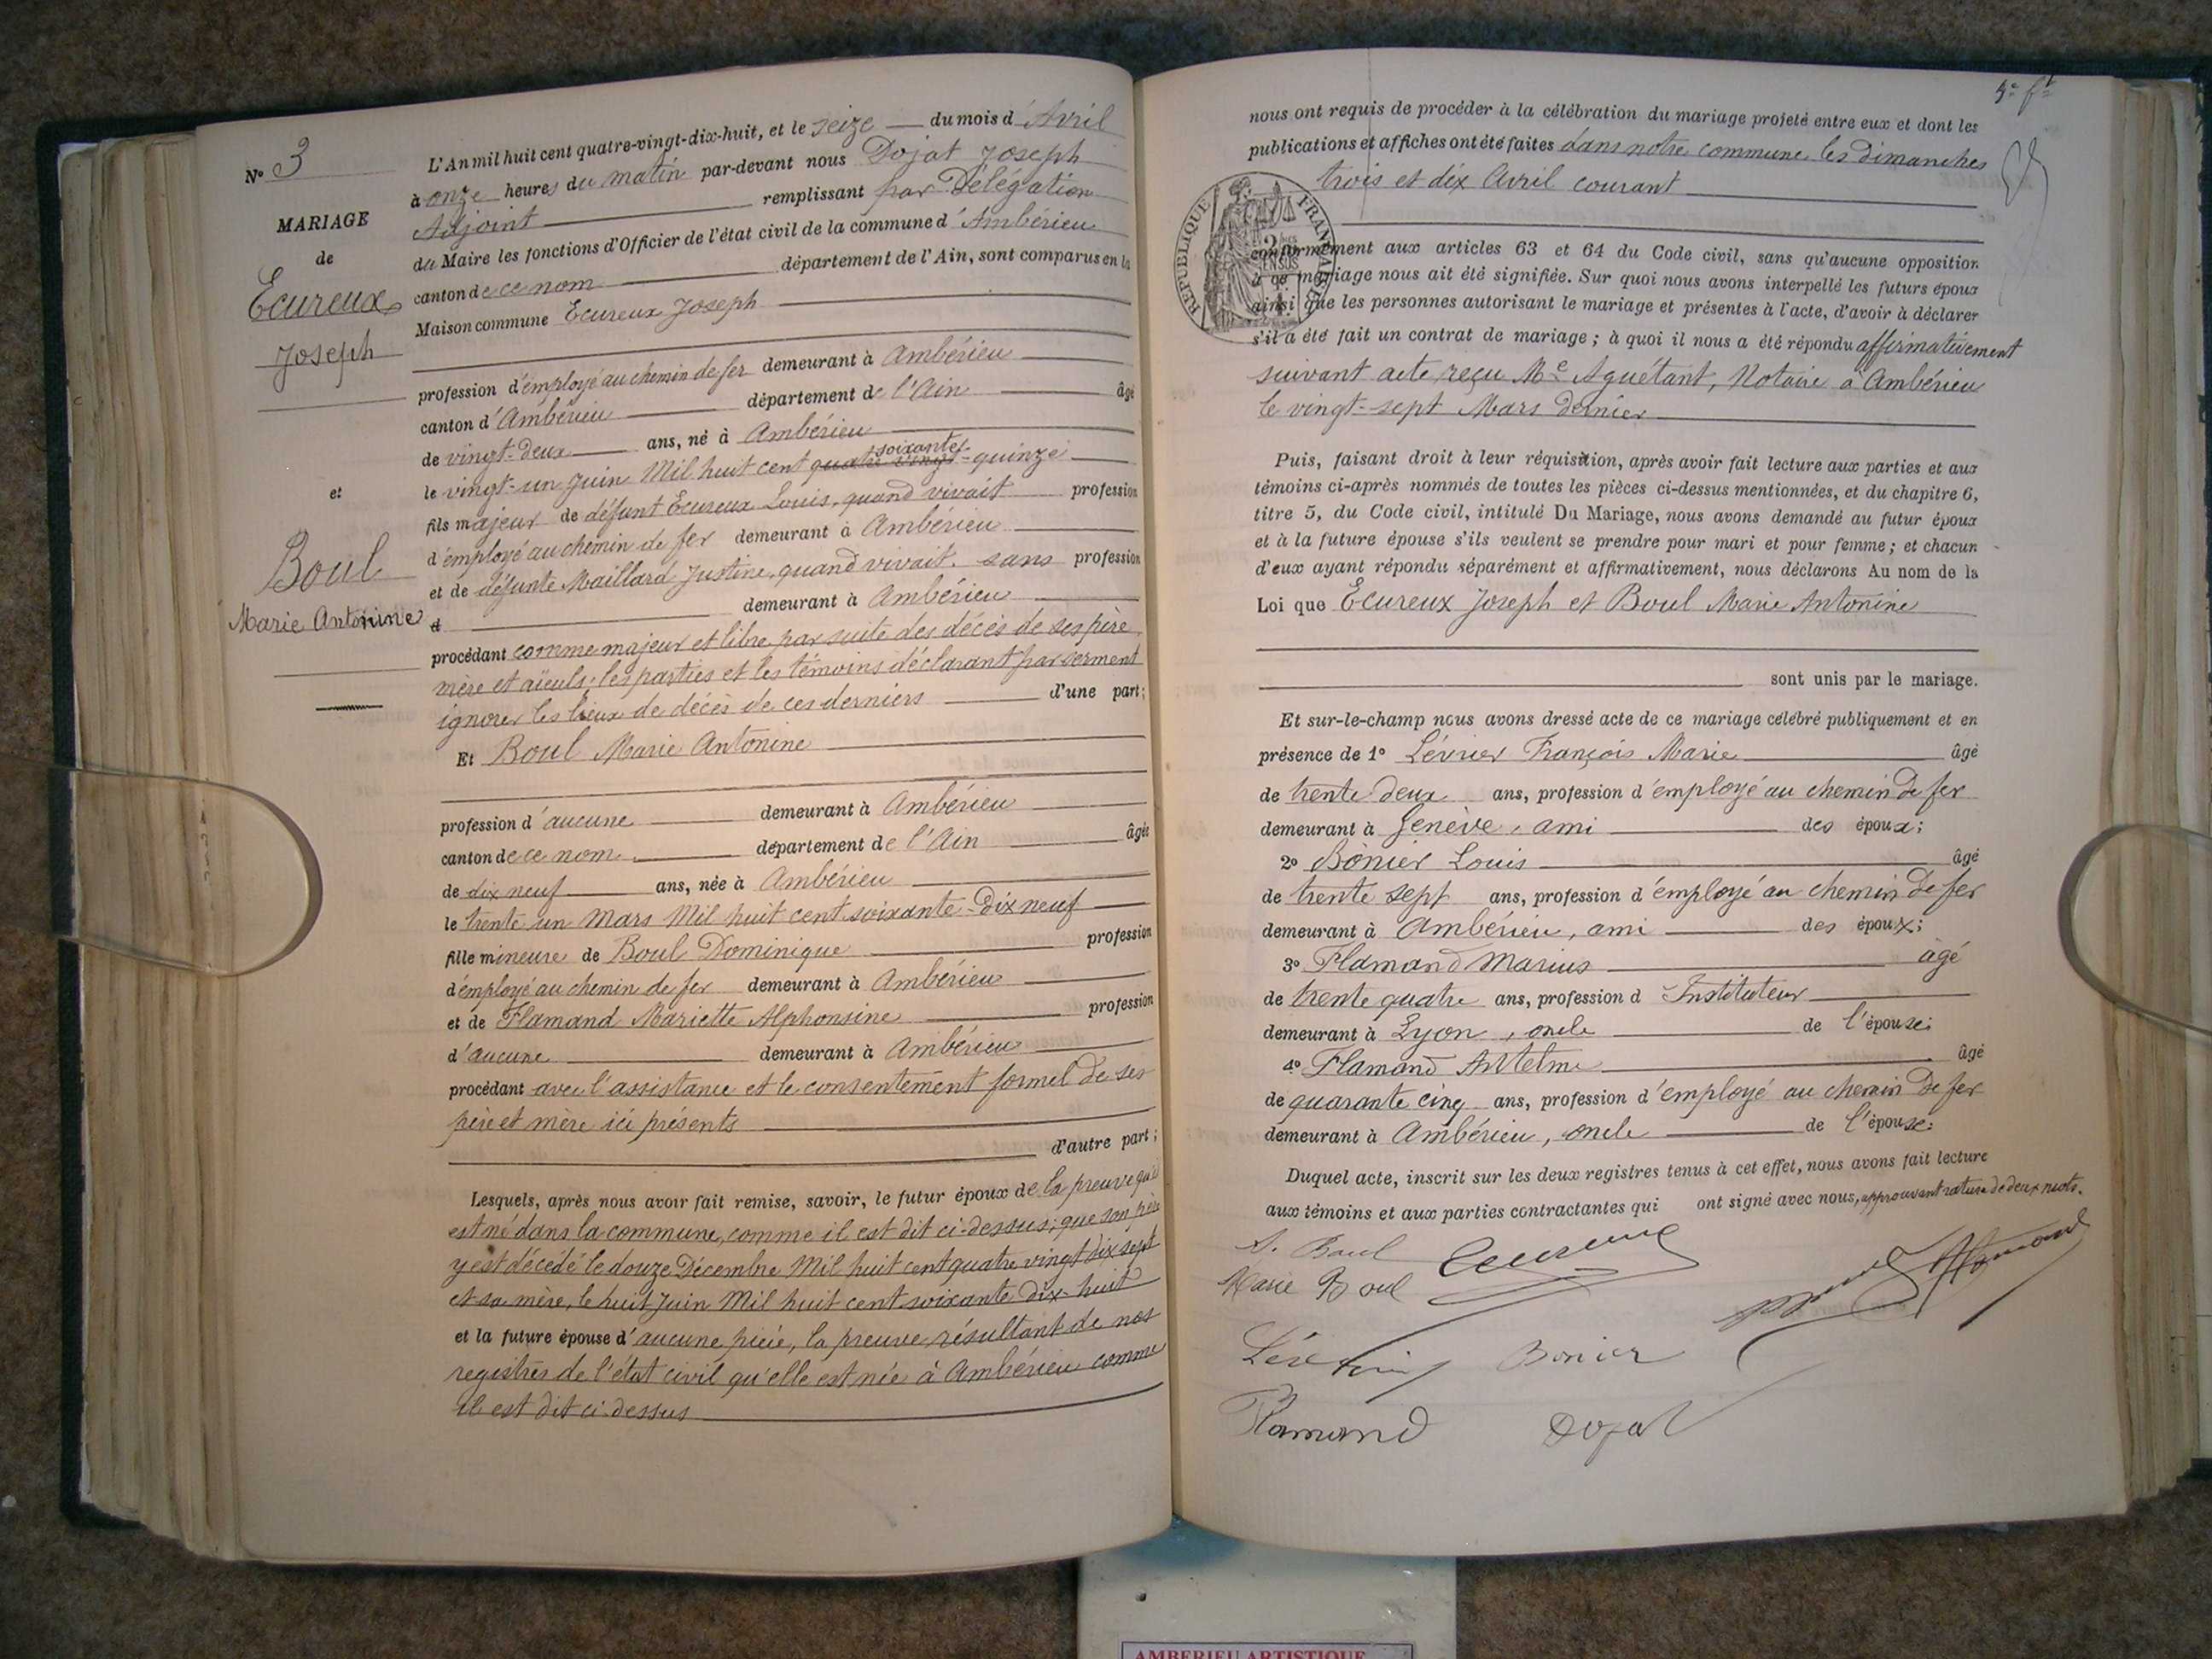 N° 3
MARIAGE
de
Ecureux
Joseph
et
Boul
Marie Antonine
L'An mil huit cent quatre-vingt-dix-huit, et le seize du mois d'Avril
à onze heures du matin par-devant nous Dojat Joseph
Adjoint remplissant par Délégation
du Maire les fonctions d'Officier de l'état civil de la commune d'Ambérieu
canton de ce nom département de l'Ain, sont comparus en la
Maison commune Ecureux Joseph
profession d'employé au chemin de fer demeurant à Ambérieu
canton d'Ambérieu département de l'Ain âgé
de vingt-deux ans, né à Ambérieu
le vingt-un Juin Mil huit cent quatre-vingt soixante-quinze
fils majeur de défunt Ecureux Louis, quand vivait profession
d'employé au chemin de fer demeurant à Ambérieu
et de défunte Maillard Justine, quand vivait. sans profession
d demeurant à Ambérieu
procédant comme majeur et libre par suite des décès de ses père
mère et aïeuls; les parties et les témoins déclarant par serment
ignorer les lieux de décès de ces derniers d'une part;
Et Boul Marie Antonine
profession d'aucune demeurant à Ambérieu
canton de ce nom département de l'Ain âgée
de dix neuf ans, née à Ambérieu
le trente un Mars Mil huit cent soixante-dix neuf
fille mineure de Boul Dominique profession
d'employé au chemin de fer demeurant à Ambérieu
et de Flamand Mariette Alphonsine profession
d'aucune demeurant à Ambérieu
procédant avec l'assistance et le consentement formel de ses
père et mère ici présents
d'autre part;
Lesquels, après nous avoir fait remise, savoir, le futur époux de la preuve qu'il
est né dans la commune, comme il est dit ci-dessus; que son père
y est décédé le douze Décembre Mil huit cent quatre vingt dix sept
et sa mère, le huit Juin Mil huit cent soixante dix-huit
et la future épouse d'aucune pièce, la preuve résultant de nos
registres de l'état civil qu'elle est née à Ambérieu comme
il est dit ci-dessus
5e ft
nous ont requis de procéder à la célébration du mariage projeté entre eux et dont les
publications et affiches ont été faites dans notre commune les dimanches
trois et dix Avril courant
REPUBLIQUE FRANÇAISE
conformément aux articles 63 et 64 du Code civil, sans qu'aucune opposition
à ce mariage nous ait été signifiée. Sur quoi nous avons interpellé les futurs époux
ainsi que les personnes autorisant le mariage et présentes à l'acte, d'avoir à déclarer
s'il a été fait un contrat de mariage; à quoi il nous a été répondu affirmativement
suivant acte reçu Me Aguétant, Notaire à Ambérieu
le vingt-sept Mars dernier
Puis, faisant droit à leur réquisition, après avoir fait lecture aux parties et aux
témoins ci-après nommés de toutes les pièces ci-dessus mentionnées, et du chapitre 6,
titre 5, du Code civil, intitulé Du Mariage, nous avons demandé au futur époux
et à la future épouse s'ils veulent se prendre pour mari et pour femme; et chacun
d'eux ayant répondu séparément et affirmativement, nous déclarons Au nom de la
Loi que Ecureux Joseph et Boul Marie Antonine
sont unis par le mariage.
Et sur-le-champ nous avons dressé acte de ce mariage célébré publiquement et en
présence de 1° Lévrier François Marie âgé
de trente deux ans, profession d'employé au chemin de fer
demeurant à Genève, ami des époux;
2° Bonier Louis âgé
de trente sept ans, profession d'employé au chemin de fer
demeurant à Ambérieu, ami des époux;
3° Flamand Marius âgé
de trente quatre ans, profession d Instituteur
demeurant à Lyon, oncle de l'épouse;
4° Flamand Antelme âgé
de quarante cinq ans, profession d'employé au chemin de fer
demeurant à Ambérieu, oncle de l'épouse;
Duquel acte, inscrit sur les deux registres tenus à cet effet, nous avons fait lecture
aux témoins et aux parties contractantes qui ont signé avec nous, approuvant rature de deux mots.
Boul Ecureux
Marie Boul Flamand
Bonier
Flamand Dojat
AMBERIEU ARTISTIQUE